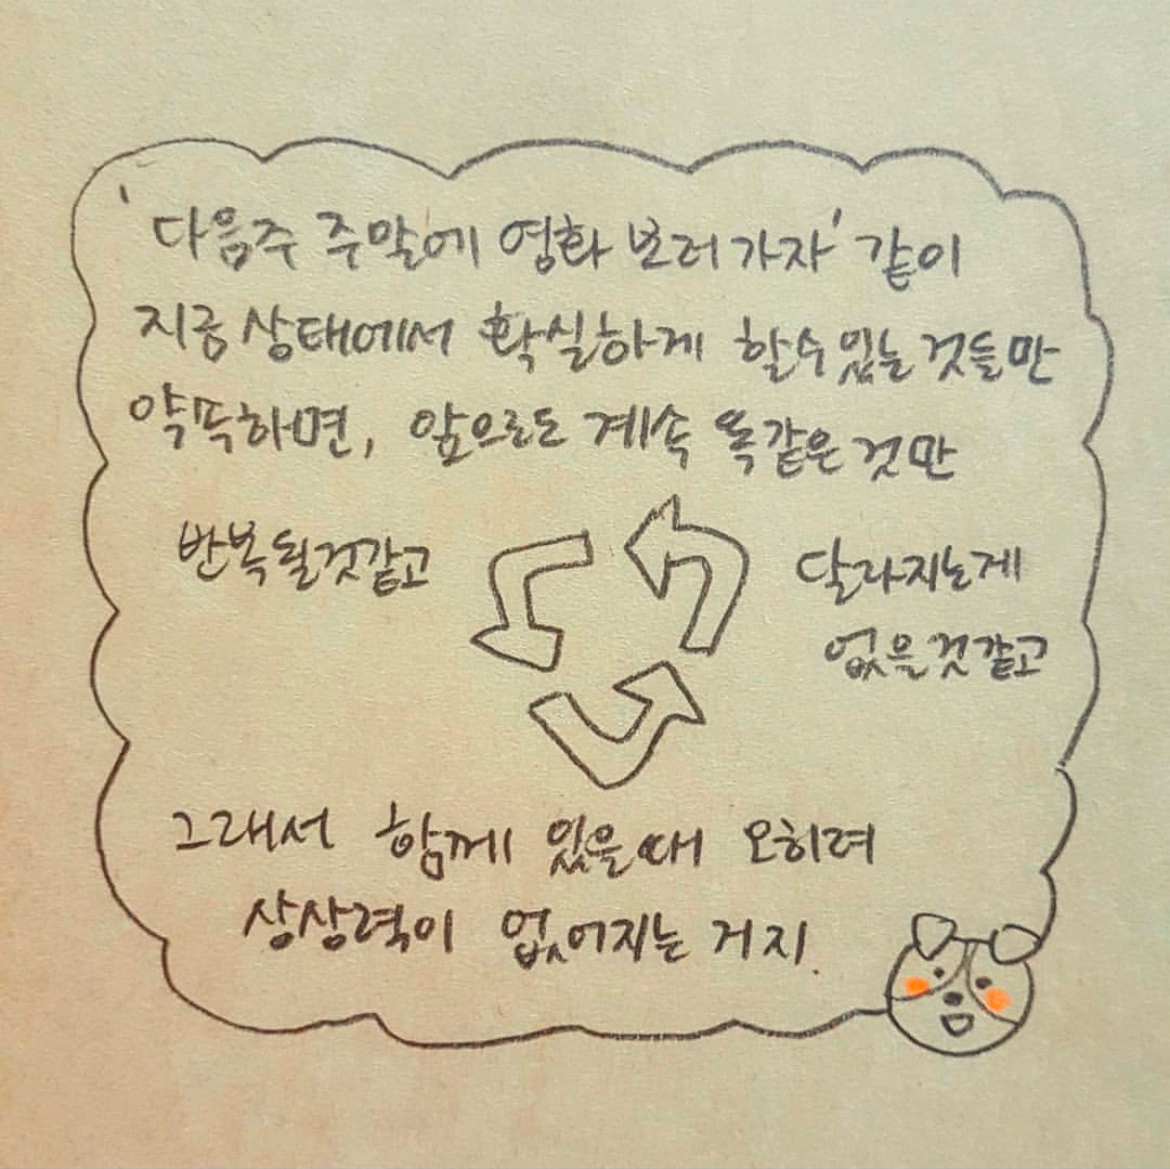 '다음주 주말에 영화 보러 가자' 같이
지금 상태에서 확실하게 할수있는 것들만
약똑하면, 앞으로도 계속 똑같은 것만
반복될것같고
달라지는게
없을것같고
그래서 함께 있을때 오히려
상상력이 없어지는 거지.